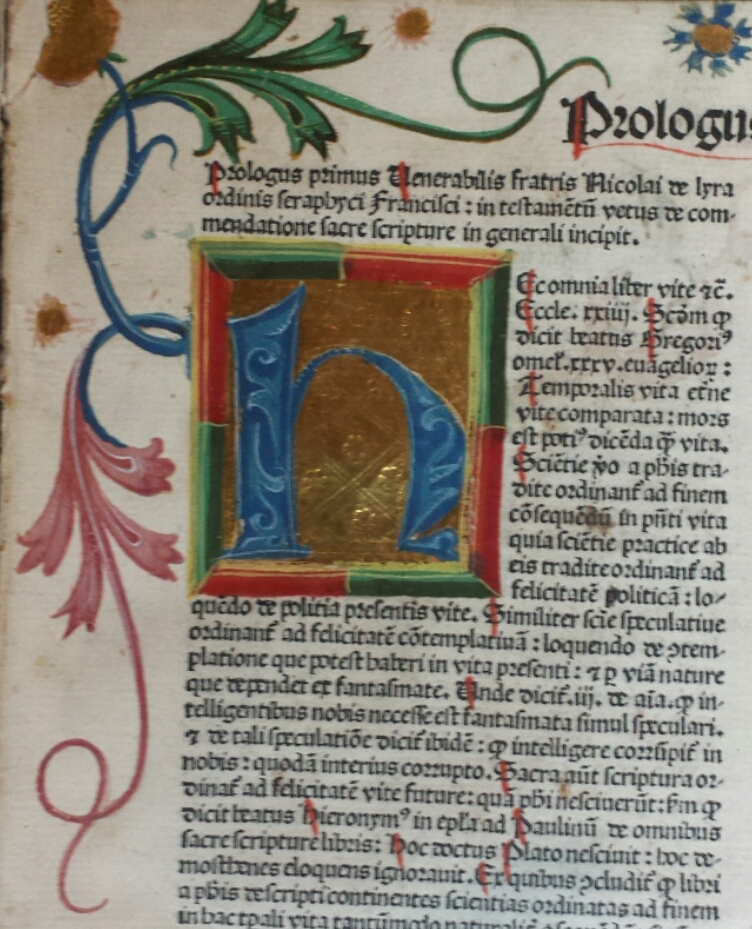 Prologus
Prologus primus Venerabilis fratris Nicolai de lyra
ordinis seraphyci Francisci : in testamētū vetus de com-
mendatione sacre scripture in generali incipit.
h
Ec omnia liber vite ⁊c̄.
Eccle. xxiiij. Scd̄m ꝙ
dicit beatus Gregoriꝰ
omel. xxxv. euangelioꝝ :
Temporalis vita eterne
vite comparata : mors
est potiꝰ dicēda ꝙ̄ vita.
Sciētie v̄o a ph̄is tra-
dite ordinant̄ ad finem
cōsequēdū in pn̄ti vita
quia sciētie practice ab
eis tradite ordinant̄ ad
felicitatē politicā : lo-
quēdo de politia presentis vite. Similiter scie speculatiue
ordinant̄ ad felicitatē cōtemplatiuā : loquendo de ꝯtem-
platione que potest haberi in vita presenti : ⁊ ꝑ viā nature
que dependet ex fantasmate. Unde dicit̄ .iij. de aīa. ꝙ in-
telligentibus nobis necesse est fantasmata simul speculari.
⁊ de tali speculatiōe dicit̄ ibidē : ꝙ intelligere corrūpit̄ in
nobis : quodā interius corrupto. Sacra aūt scriptura or-
dinat̄ ad felicitatē vite future : quā ph̄i nesciuerūt : fm̄ ꝙ
dicit beatus Hieronymꝰ in epl̄a ad Paulinū de omnibus
sacre scripture libris : Hoc doctus Plato nesciuit : hoc de-
mosthenes eloquens ignorauit. Ex quibus ꝯcludit̄ ꝙ libri
a ph̄is descripti continentes scientias ordinatas ad finem
in hac tp̄ali vita tantūmodo